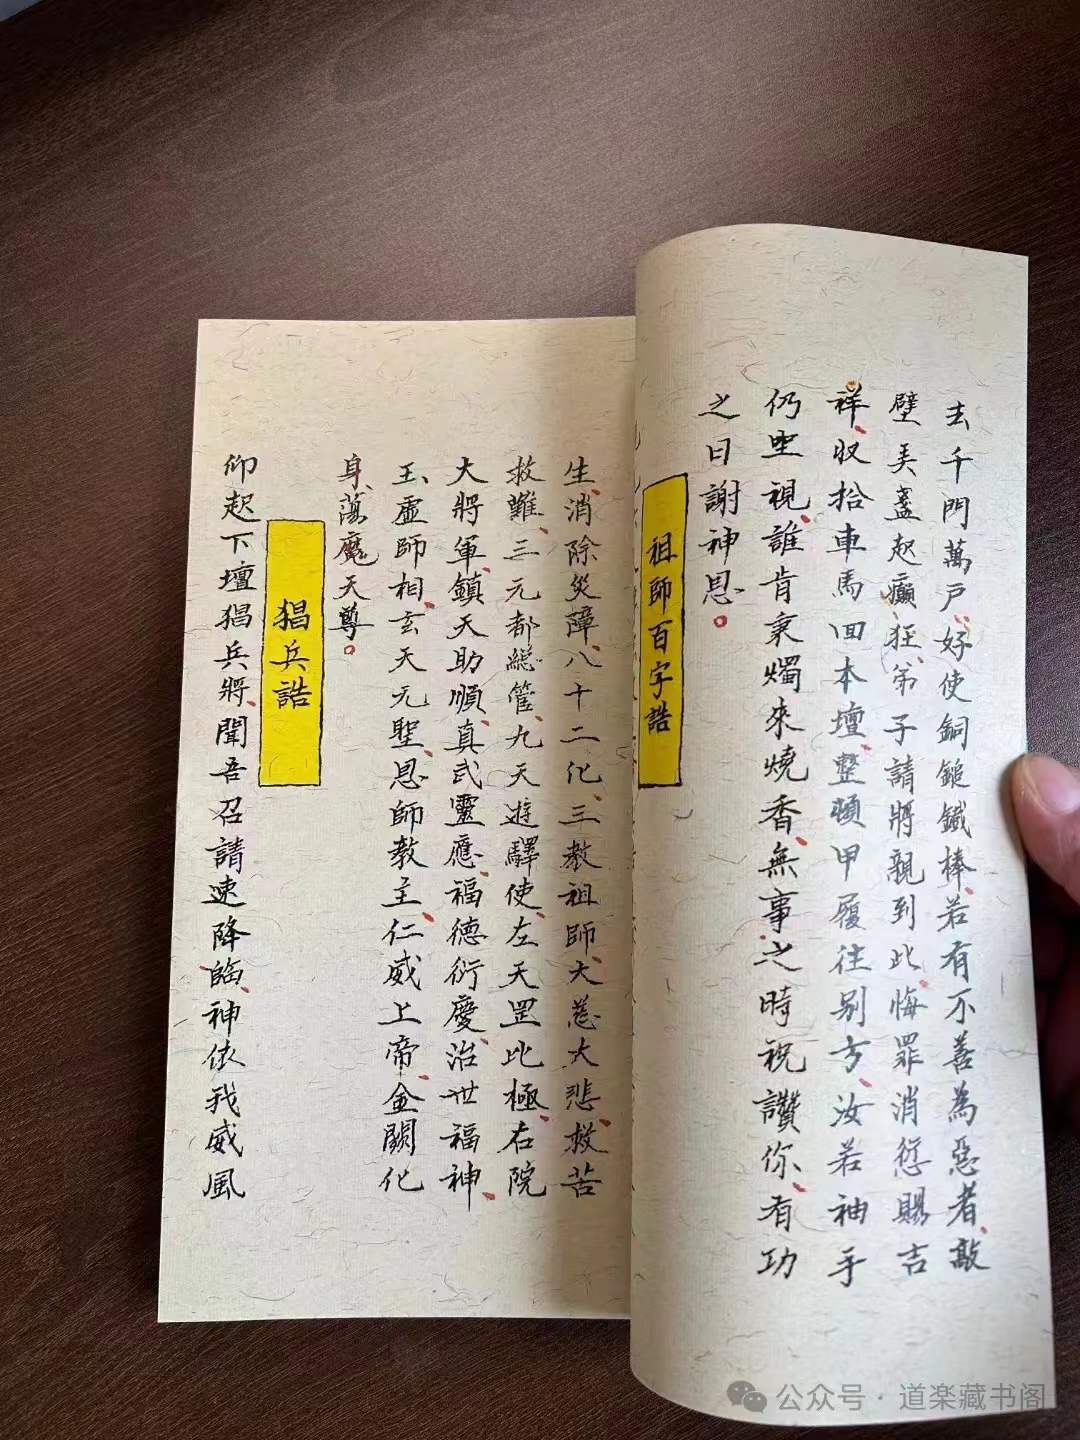 去千門萬戶好使銅鎚鐵棒若有不善為惡者敲
壁美盞起癲狂第子請將親到此悔罪消愆賜吉
祥收拾車馬回本壇整頓甲履往别方汝若袖手
仍坐視誰肯秉燭來燒香無事之時祝讚你有功
之日謝神恩
祖師百字誥
生消除災障八十二化三教祖師大慈大悲救苦
救難三元都總管九天遊驛使左天罡北極右院
大將軍鎮天助順真武靈應福德衍慶治世福神
玉虛師相玄天元聖恩師教主仁威上帝金闕化
身蕩魔天尊
猖兵誥
仰起下壇猖兵將聞吾召請速降臨神依我威風
公众号·道楽藏书阁